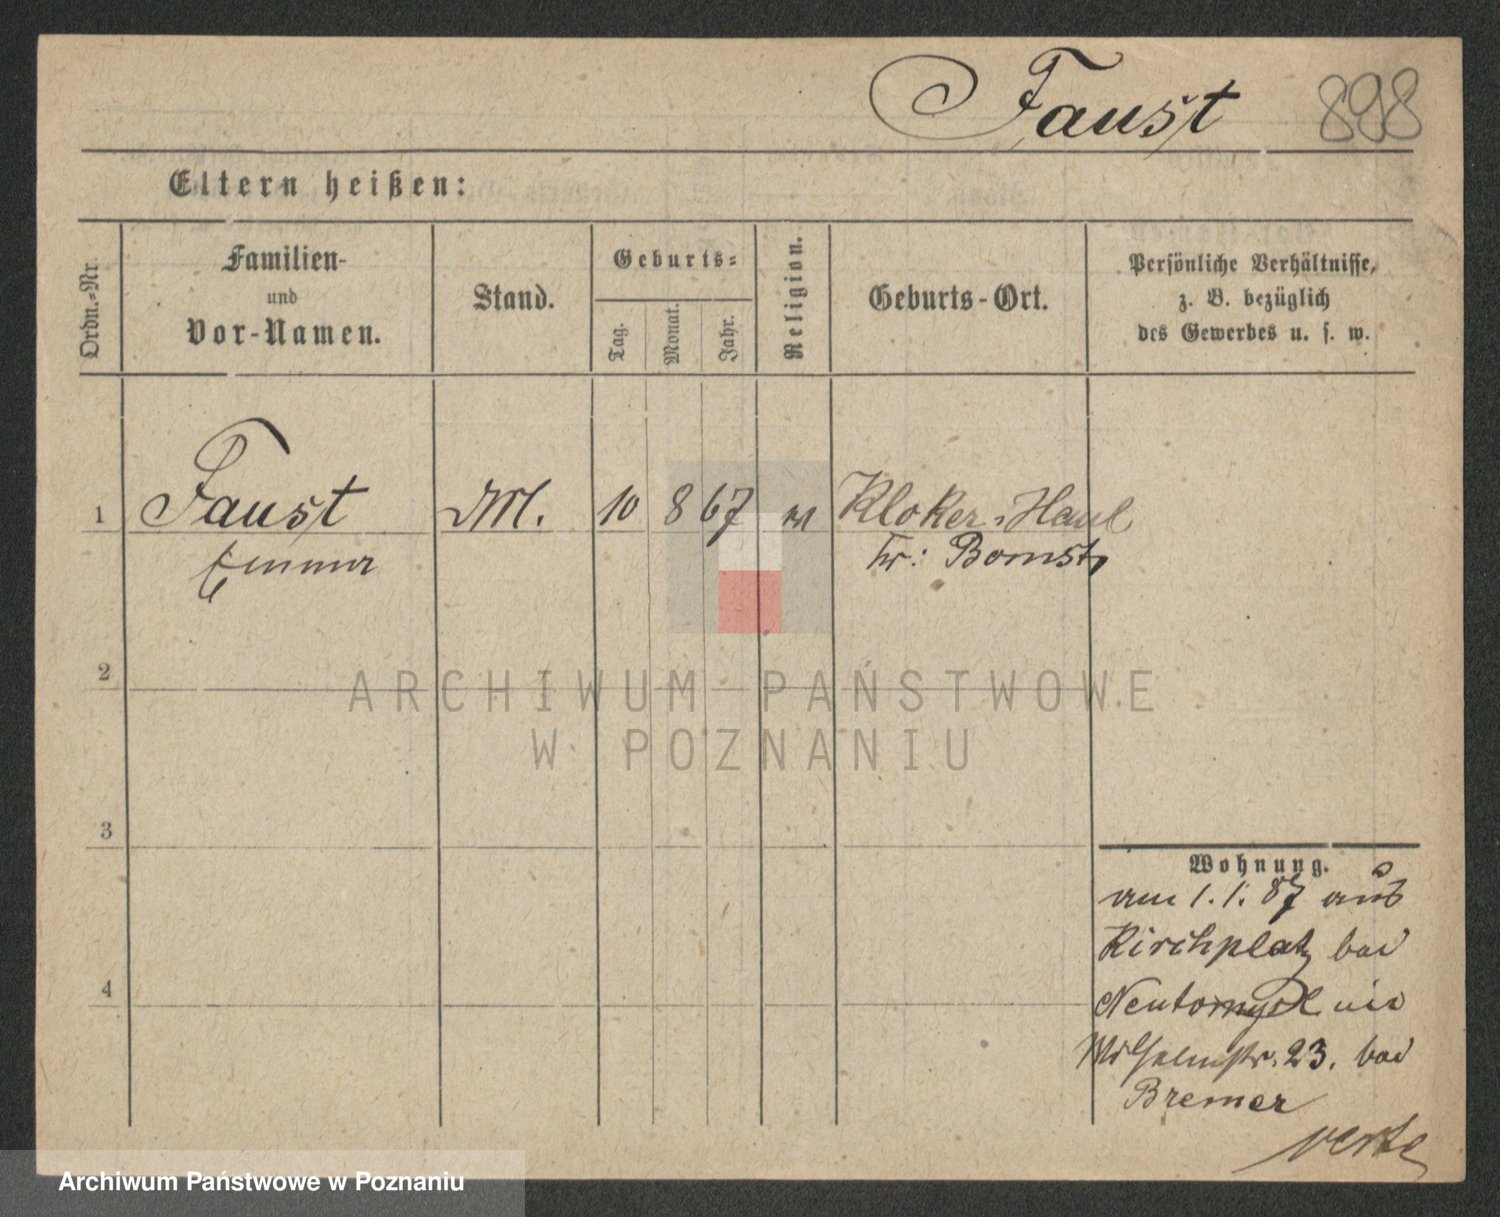 Faust 898
Eltern heißen:
Ordn.-Nr.
Familien-
und
Vor-Namen.
Stand.
Geburts-
Tag.
Monat.
Jahr.
Religion.
Geburts-Ort.
Persönliche Verhältnisse,
z. B. bezüglich
des Gewerbes u. s. w.
1 Faust M. 10 8 67 Kloker-Haul
Emma Kr: Bomst
2
ARCHIWUM PAŃSTWOWE
W POZNANIU
3
4
Wohnung.
am 1.1.87 aus
Kirchplatz bei
Neutomysl in
Wilhelmstr. 23. bei
Bremer
verte
Archiwum Państwowe w Poznaniu